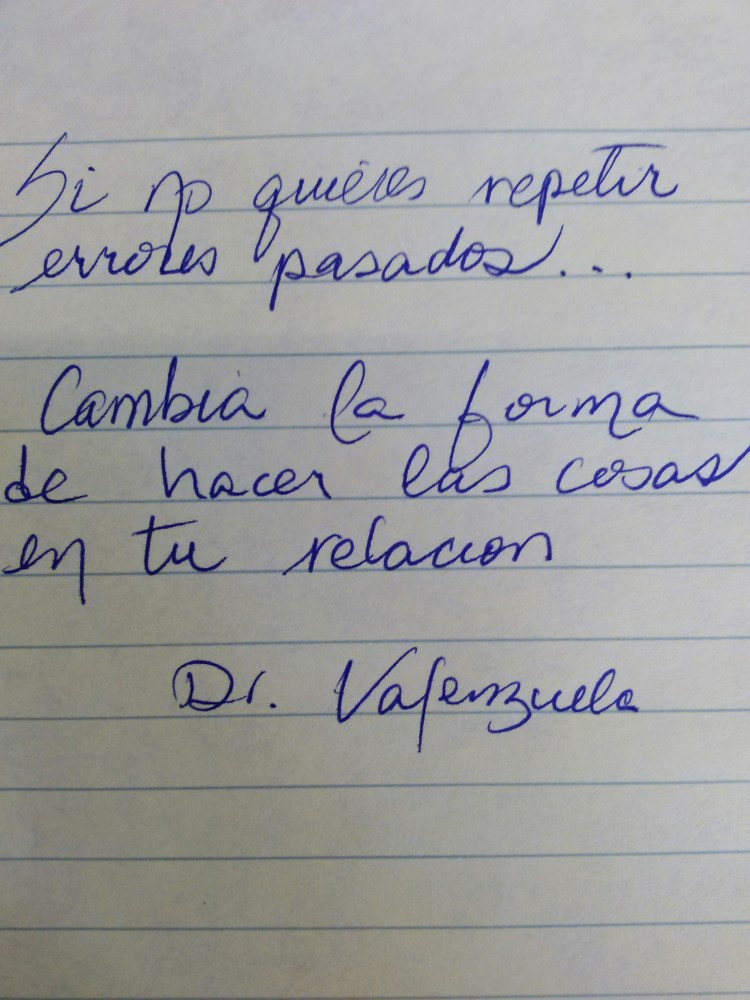 Si no quieres repetir
errores pasados...
Cambia la forma
de hacer las cosas
en tu relacion
Dr. Valenzuela